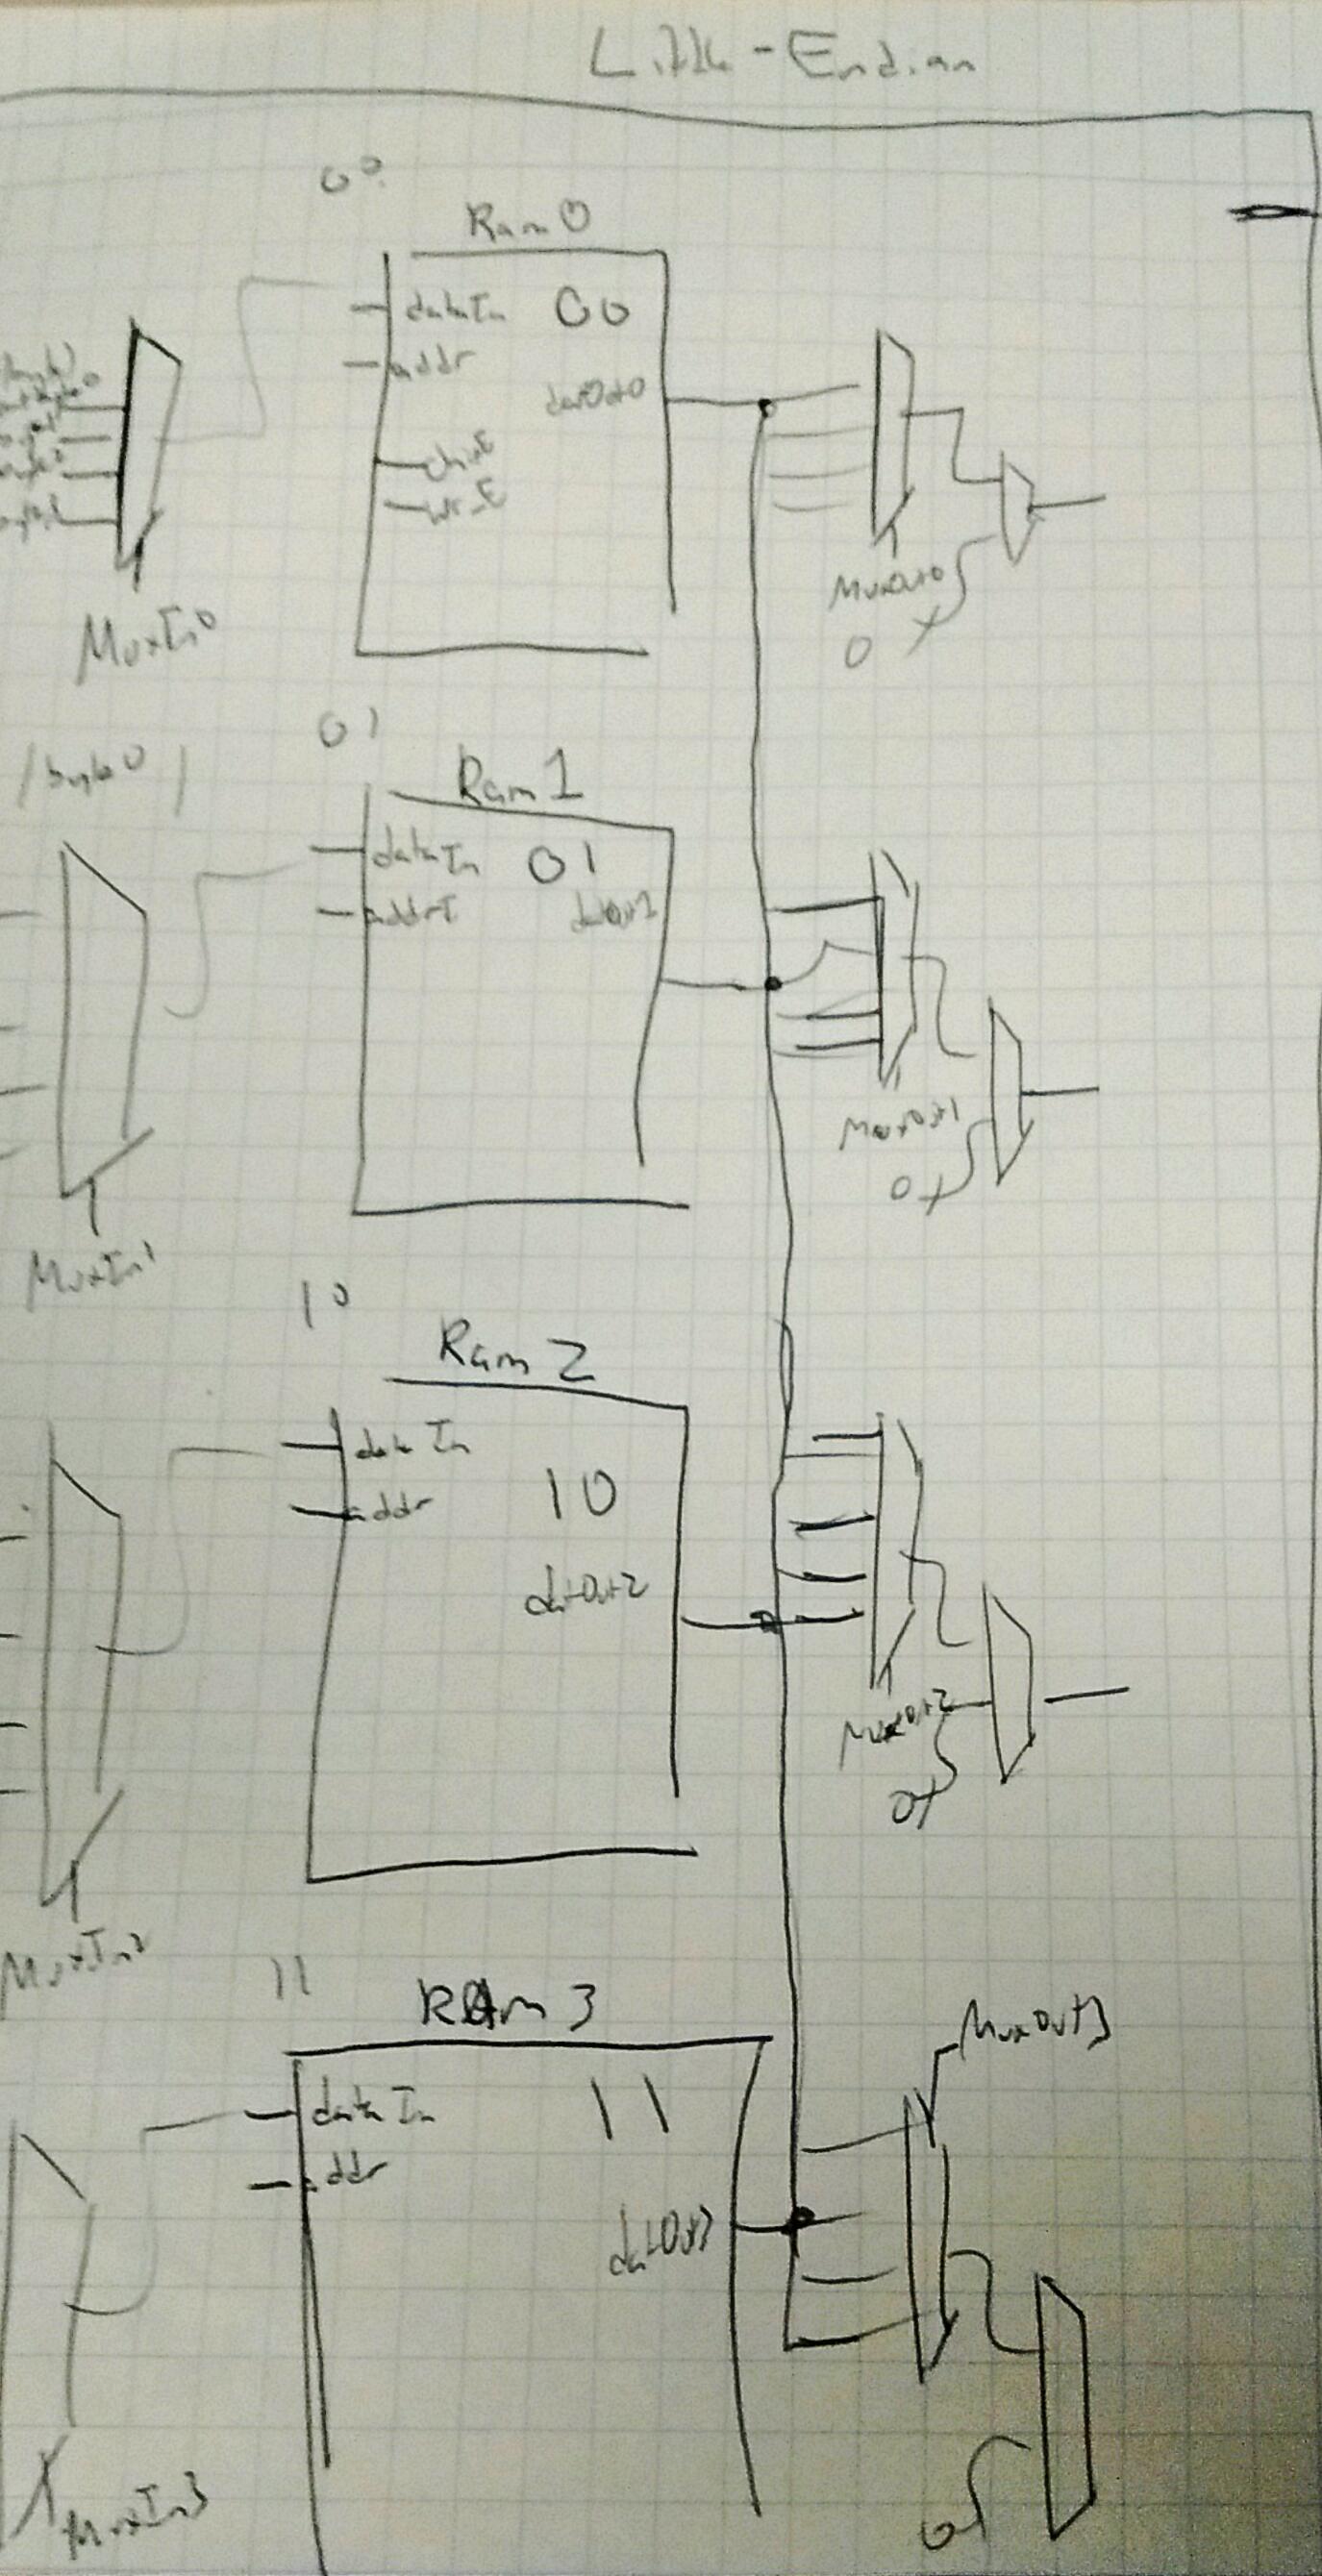 Little-Endian
00
Ram 0
dataIn 00
addr
datOut0
chipE
wr_E
MuxIn0
MuxOut0
0
01
/byte0/
Ram 1
dataIn 01
addrI
datOut1
MuxIn1
MuxOut1
0
10
Ram 2
data In
addr
10
datOut2
MuxIn2
MuxOut2
0
11
RAm 3
data In
11
addr
datOut3
MuxOut3
MuxIn3
0